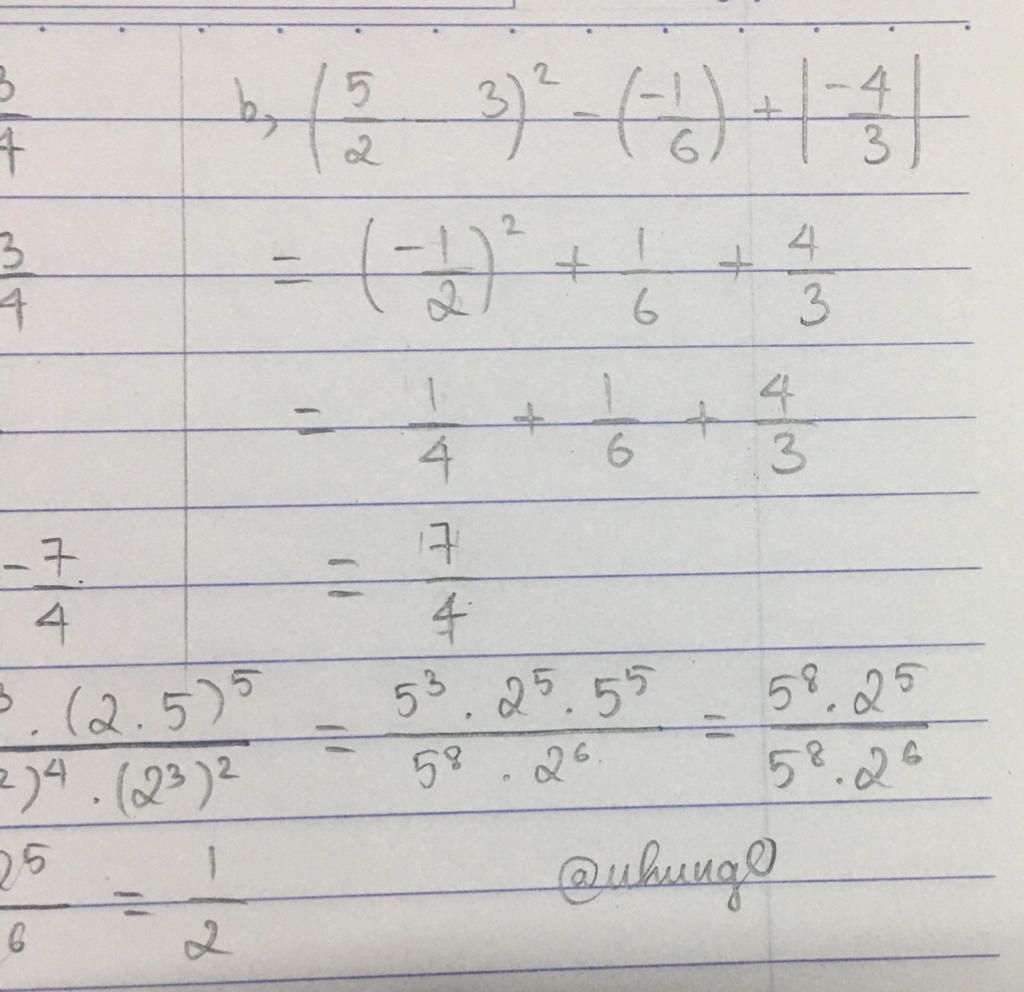 3/4
b, (5/2 - 3)² - (-1/6) + |-4/3|
3/4 = (-1/2)² + 1/6 + 4/3
= 1/4 + 1/6 + 4/3
-7/4 = 7/4
³ . (2 . 5)⁵ / ²)⁴ . (2³)² = 5³ . 2⁵ . 5⁵ / 5⁸ . 2⁶ = 5⁸ . 2⁵ / 5⁸ . 2⁶
2⁵/⁶ = 1/2
@uhung